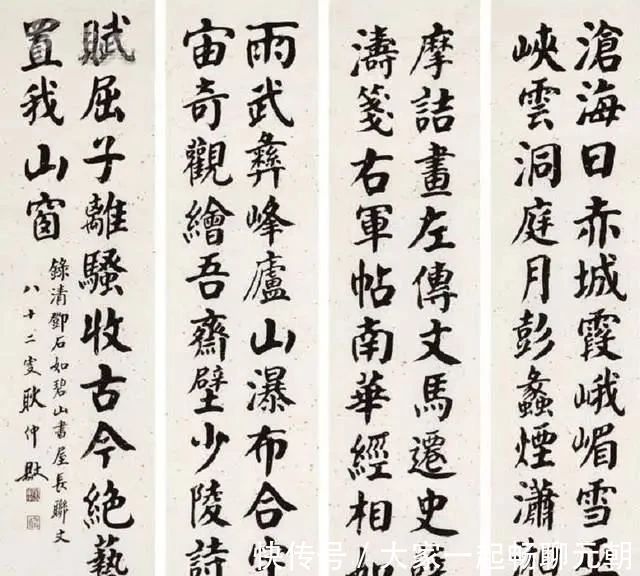 滄海日赤城霞峨嵋雪
峽雲洞庭月彭蠡煙瀟
摩詰畫左傳文馬遷史
濤箋右軍帖南華經相
雨武彝峰廬山瀑布合
宙奇觀繪吾齋壁少陵詩
賦屈子離騷收古今絕藝
置我山窗
錄清鄧石如碧山書屋長聯文
八十二叟耿仲
快传号/大家一起畅聊元朝